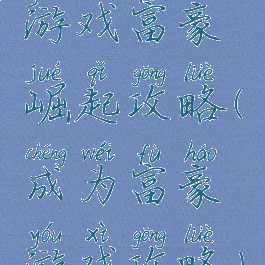 游戏富豪
jué qǐ gōng lüè
崛起攻略(
chéng wéi fù háo
成为富豪
yóu xì gōng lüè
游戏攻略)